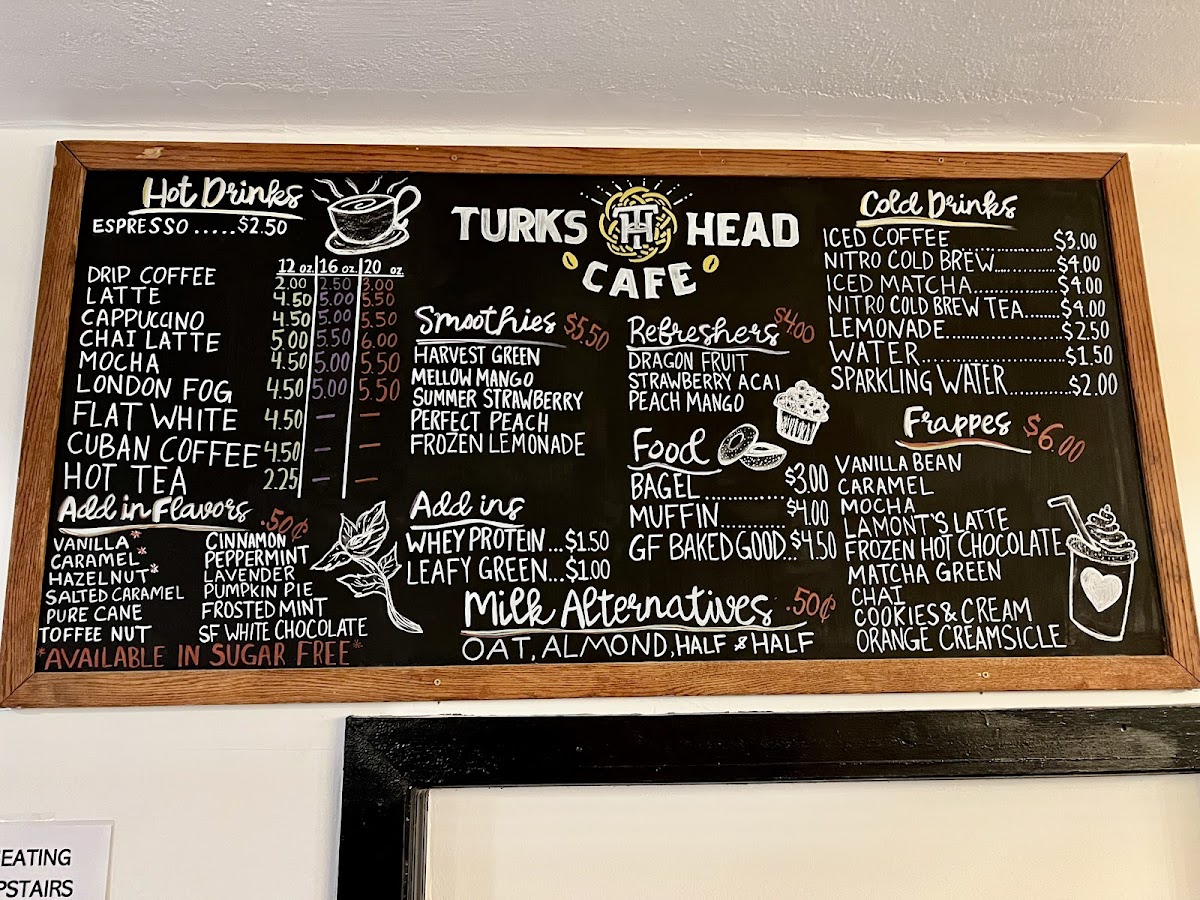 Hot Drinks
ESPRESSO.....$2.50
12 oz. 16 oz. 20 oz.
DRIP COFFEE 2.00 2.50 3.00
LATTE 4.50 5.00 5.50
CAPPUCCINO 4.50 5.00 5.50
CHAI LATTE 5.00 5.50 6.00
MOCHA 4.50 5.00 5.50
LONDON FOG 4.50 5.00 5.50
FLAT WHITE 4.50 — —
CUBAN COFFEE 4.50 — —
HOT TEA 2.25 — —
Add in Flavors .50¢
VANILLA*
CARAMEL*
HAZELNUT*
SALTED CARAMEL
PURE CANE
TOFFEE NUT
CINNAMON
PEPPERMINT
LAVENDER
PUMPKIN PIE
FROSTED MINT
SF WHITE CHOCOLATE
*AVAILABLE IN SUGAR FREE*
TURKS TH HEAD
CAFE
Smoothies $5.50
HARVEST GREEN
MELLOW MANGO
SUMMER STRAWBERRY
PERFECT PEACH
FROZEN LEMONADE
Add ins
WHEY PROTEIN...$1.50
LEAFY GREEN...$1.00
Refreshers $4.00
DRAGON FRUIT
STRAWBERRY ACAI
PEACH MANGO
Food
BAGEL............$3.00
MUFFIN..........$4.00
GF BAKED GOOD..$4.50
Milk Alternatives .50¢
OAT, ALMOND, HALF & HALF
Cold Drinks
ICED COFFEE................$3.00
NITRO COLD BREW...........$4.00
ICED MATCHA..............$4.00
NITRO COLD BREW TEA........$4.00
LEMONADE................$2.50
WATER....................$1.50
SPARKLING WATER...........$2.00
Frappes $6.00
VANILLA BEAN
CARAMEL
MOCHA
LAMONT'S LATTE
FROZEN HOT CHOCOLATE
MATCHA GREEN
CHAI
COOKIES & CREAM
ORANGE CREAMSICLE
EATING
PSTAIRS